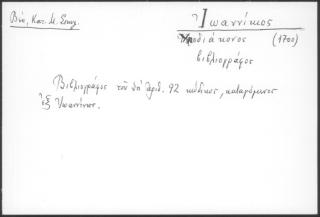 Βιβλ. Κατ. Μ. Σιναχ.
Ἰωαννίκιος
Ὑποδιάκονος (1700)
βιβλιογράφος
Βιβλιογράφος τοῦ ὑπ' ἀριθ. 92 κώδικος, καταγόμενος
ἐξ Ἰωαννίνων.